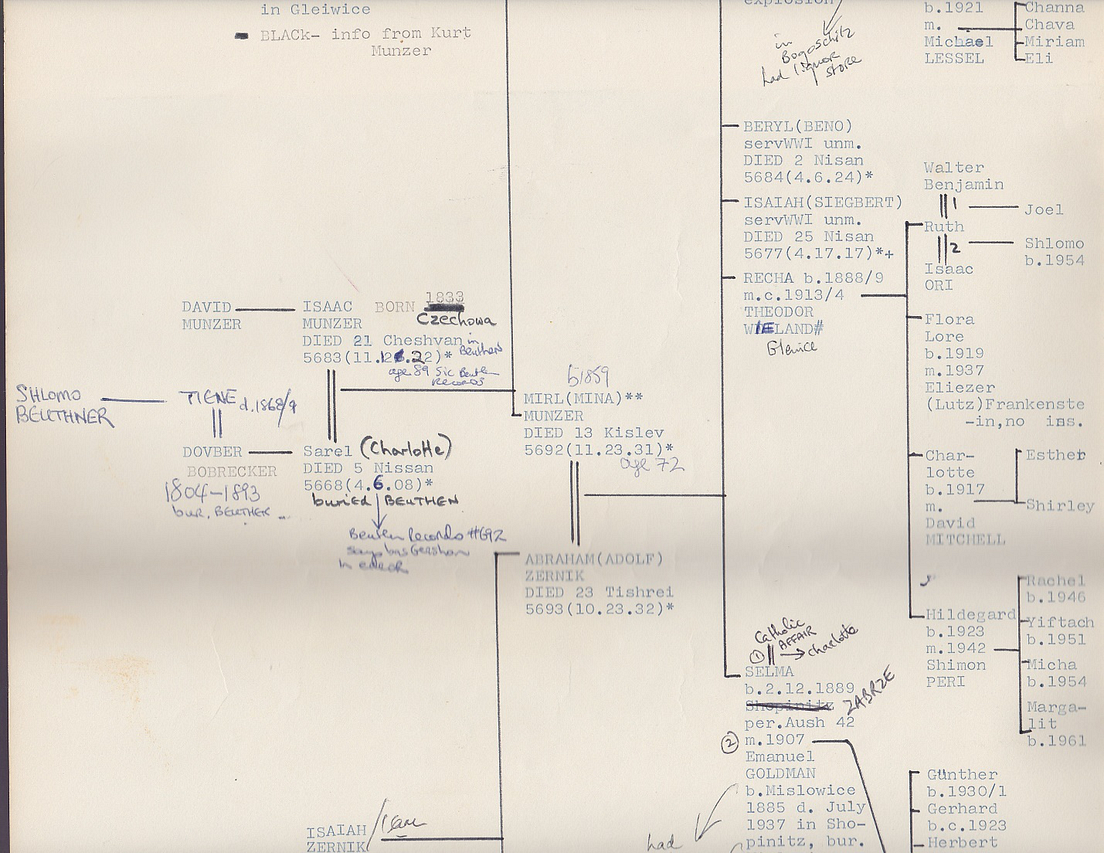 in Gleiwice
BLACk- info from Kurt
Munzer
explosion
in
Bogoschitz
had liquor
store
b.1921
m.
Michael
LESSEL
Channa
Chava
Miriam
Eli
BERYL(BENO)
servWWI unm.
DIED 2 Nisan
5684(4.6.24)*
ISAIAH(SIEGBERT)
servWWI unm.
DIED 25 Nisan
5677(4.17.17)*+
RECHA b.1888/9
m.c.1913/4
THEODOR
WIELAND#
Gleiwice
Walter
Benjamin
1
Joel
Ruth
2
Shlomo
b.1954
Isaac
ORI
Flora
Lore
b.1919
m.1937
Eliezer
(Lutz)Frankenste
-in,no ins.
Char-
lotte
b.1917
m.
David
MITCHELL
Esther
Shirley
Hildegard
b.1923
m.1942
Shimon
PERI
Rachel
b.1946
Yiftach
b.1951
Micha
b.1954
Marga-
lit
b.1961
DAVID
MUNZER
ISAAC BORN 1833
MUNZER Czechowa
DIED 21 Cheshvan in Beuthen
5683(11.12.22)*
age 89 Sic Beuthen
Records
SHLOMO
BEUTHNER
TIENE d.1868/9
DOVBER
BOBRECKER
1804-1893
bur. BEUTHEN
Sarel (Charlotte)
DIED 5 Nissan
5668(4.6.08)*
buried BEUTHEN
Beuthen Records #692
says bas Gershon
b1859
MIRL(MINA)**
MUNZER
DIED 13 Kislev
5692(11.23.31)*
age 72
ABRAHAM(ADOLF)
ZERNIK
DIED 23 Tishrei
5693(10.23.32)*
Catholic
AFFAIR
1 → charlotte
SELMA
b.2.12.1889
Shopinitz ZABRZE
per.Aush 42
2 m.1907
Emanuel
GOLDMAN
b.Mislowice
1885 d. July
1937 in Sho-
pinitz, bur.
had
Günther
b.1930/1
Gerhard
b.c.1923
Herbert
ISAIAH
ZERNIK